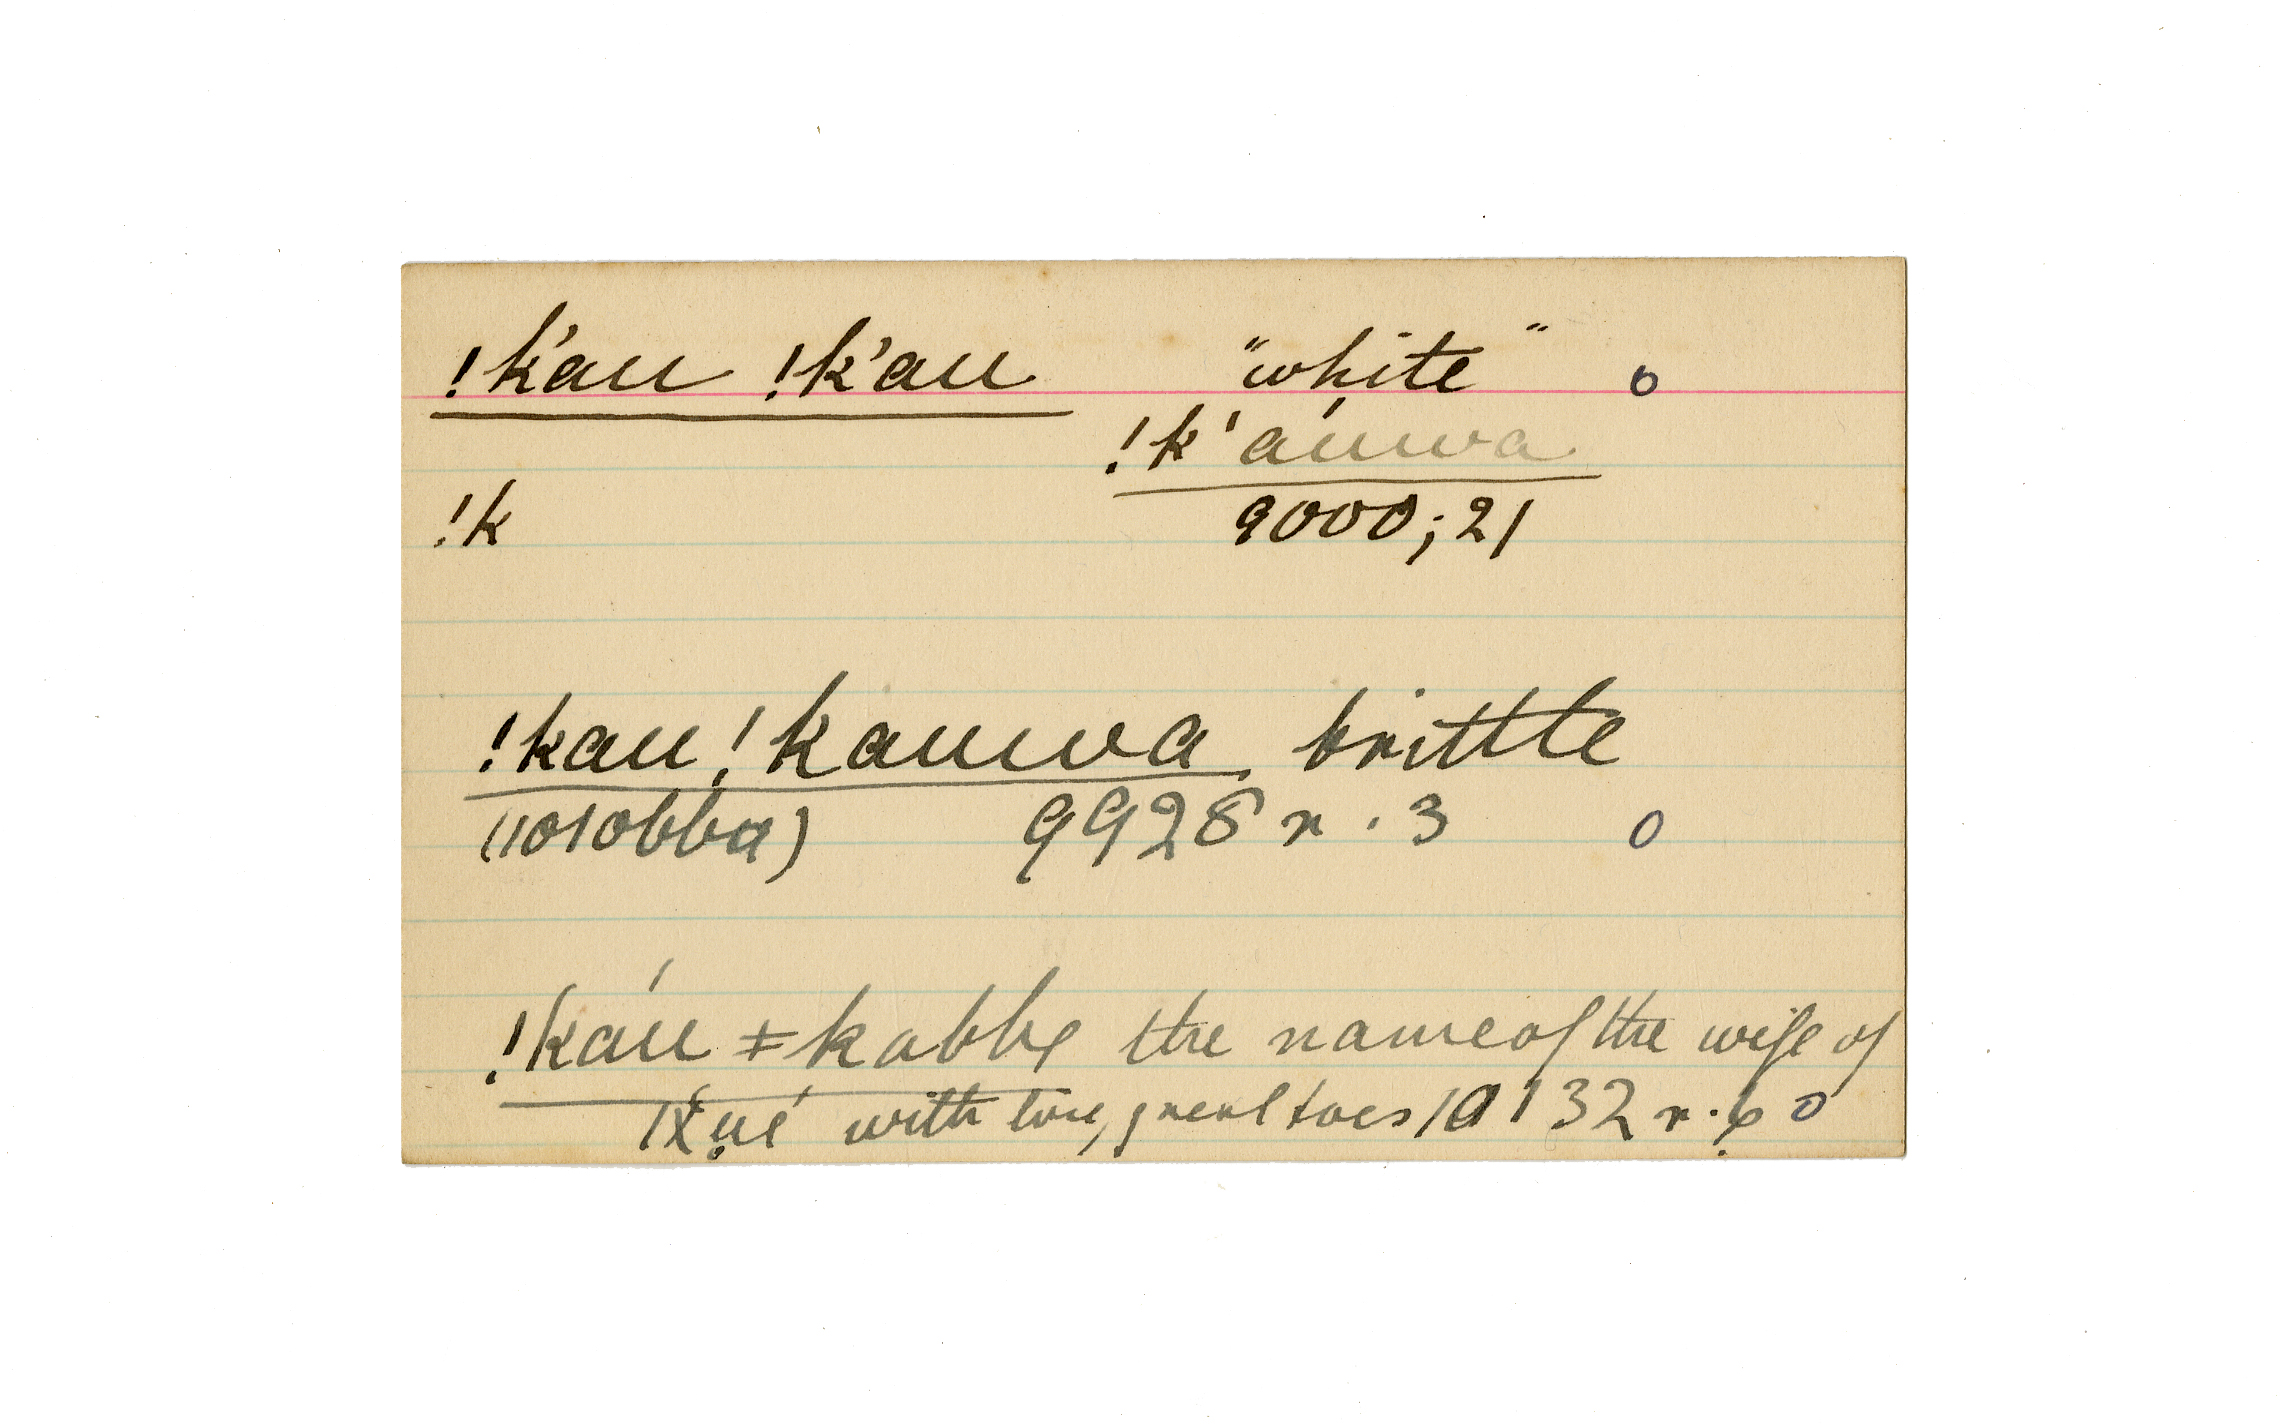 !k'au !k'au "white" o
!k'áuwa
!k 9000; 21
!kau!kauwa brittle
(ıoıobba) 9928 r. 3 o
!káu ǂkabbe the name of the wife of
with two, great toes 10132 r. o